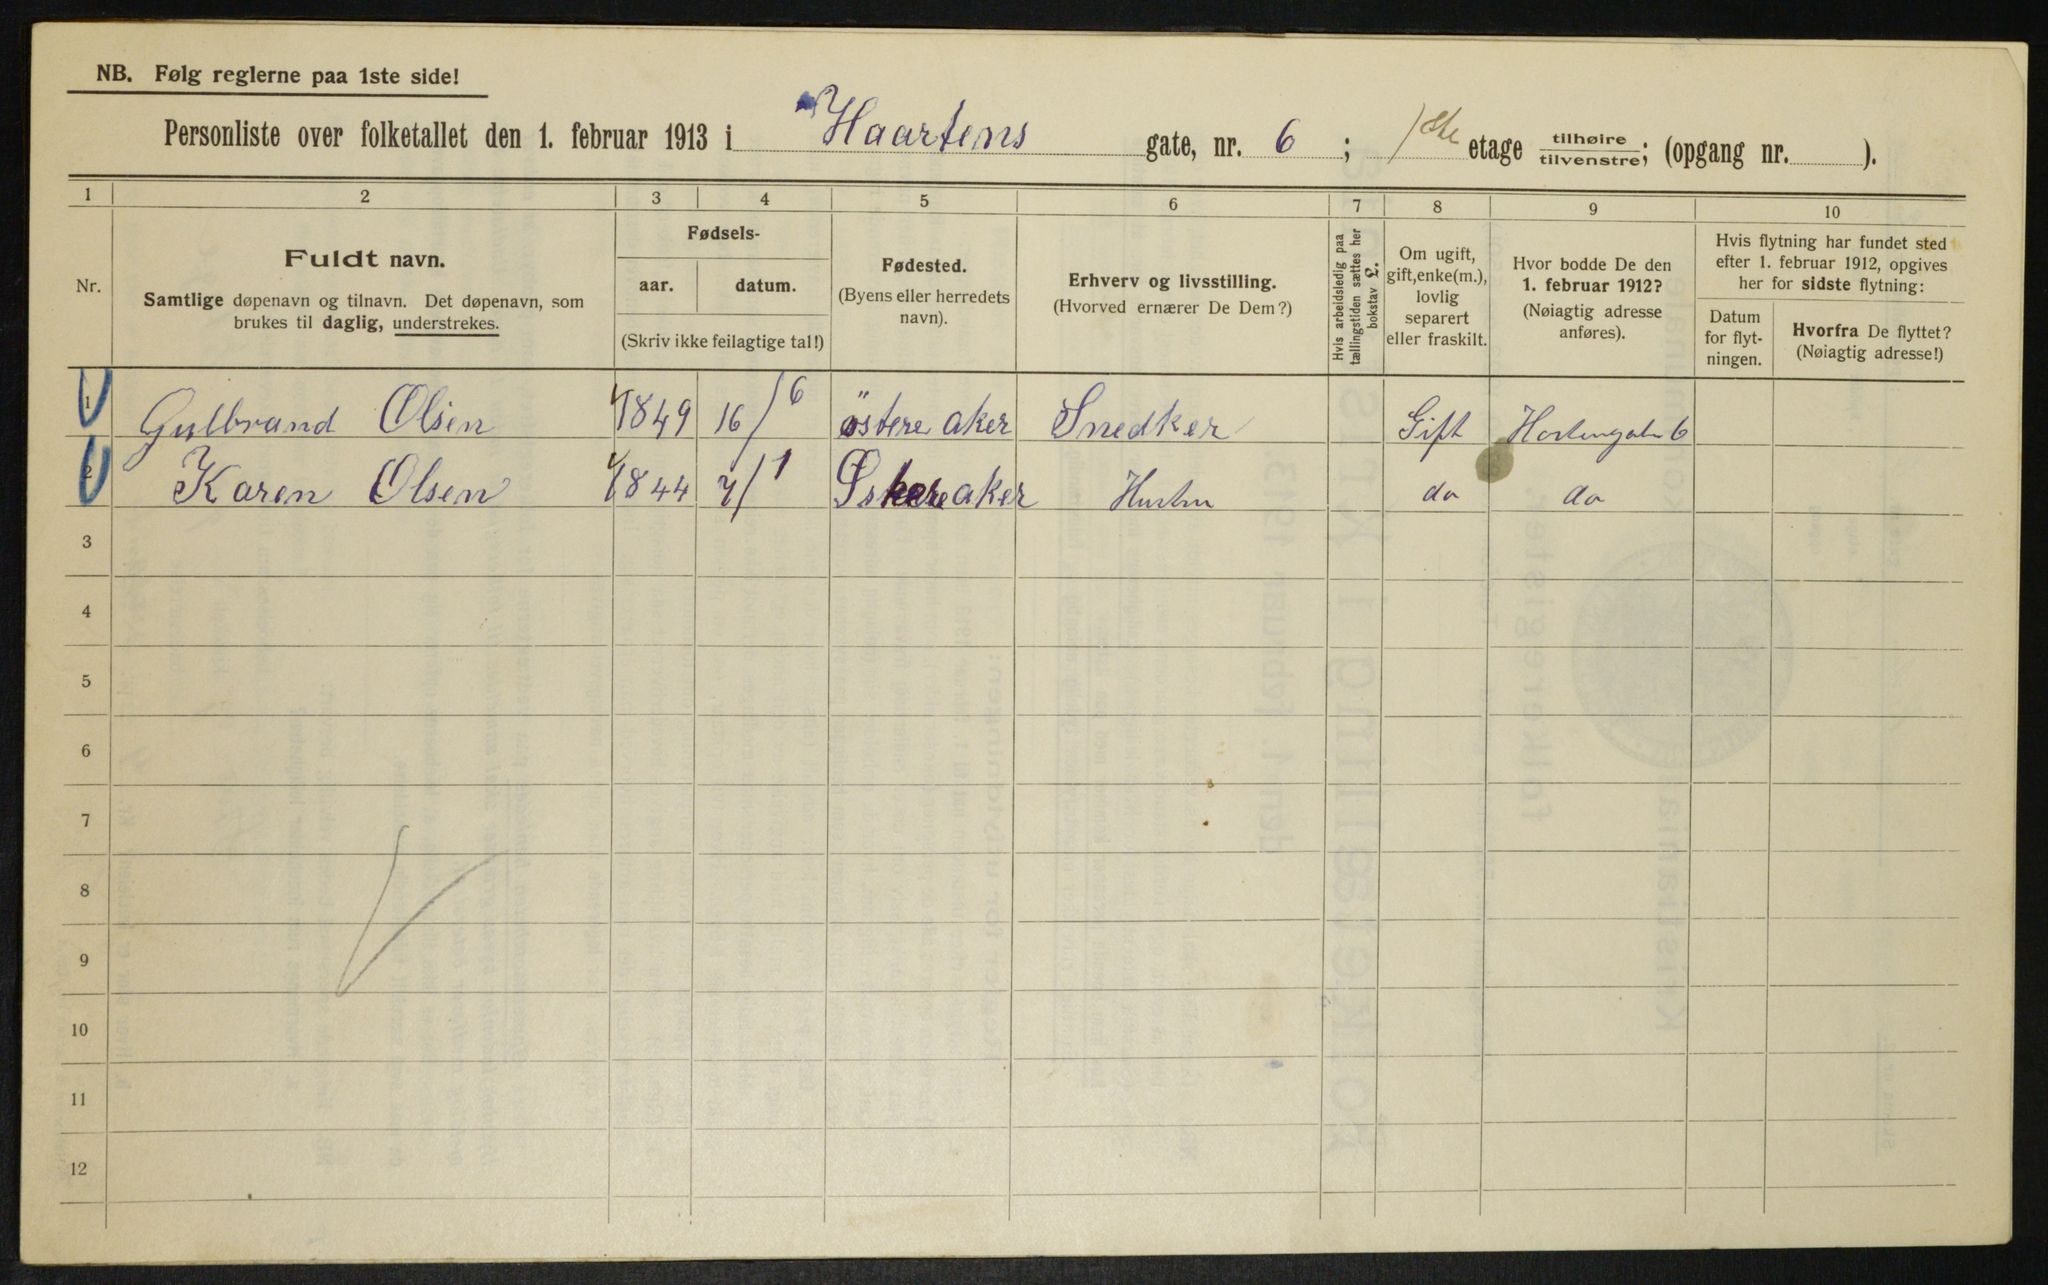 NB. Følg reglerne paa 1ste side!
Personliste over folketallet den 1. februar 1913 i Haartens gate, nr. 6 ; 1ste etage tilhøire tilvenstre; (opgang nr. ).
1 2 3 4 5 6 7 8 9 10
Nr.
Fuldt navn.
Samtlige døpenavn og tilnavn. Det døpenavn, som
brukes til daglig, understrekes.
Fødsels-
aar. datum.
(Skriv ikke feilagtige tal!)
Fødested.
(Byens eller herredets
navn).
Erhverv og livsstilling.
(Hvorved ernærer De Dem?)
Hvis arbeidsledig paa
tællingstiden sættes her
bokstav L.
Om ugift,
gift, enke(m.),
lovlig
separert
eller fraskilt.
Hvor bodde De den
1. februar 1912?
(Nøiagtig adresse
anføres).
Hvis flytning har fundet sted
efter 1. februar 1912, opgives
her for sidste flytning:
Datum
for flyt-
ningen.
Hvorfra De flyttet?
(Nøiagtig adresse!)
1 Gulbrand Olsen 1849 16/6 østere aker Snedker Gift 6
2 Karen Olsen 1844 7/1 aker Hustru do do
3
4
5
6
7
8
9
10
11
12